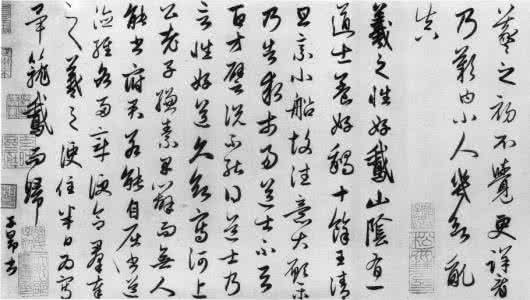 羲之初不覺更詳看
乃歎曰小人幾欲亂
真
羲之性好鵝山陰有一
道士養好鵝十餘王清
旦乘小船故往意大願樂
乃告求市易道士不與
百方譬說不能得道士乃
言性好道久欲寫河上
公老子縑素早辦而無人
能書府君若能自屈書道
德經各兩章便合羣奉
羲之便住半日為寫
畢籠鵝而歸 子昂書